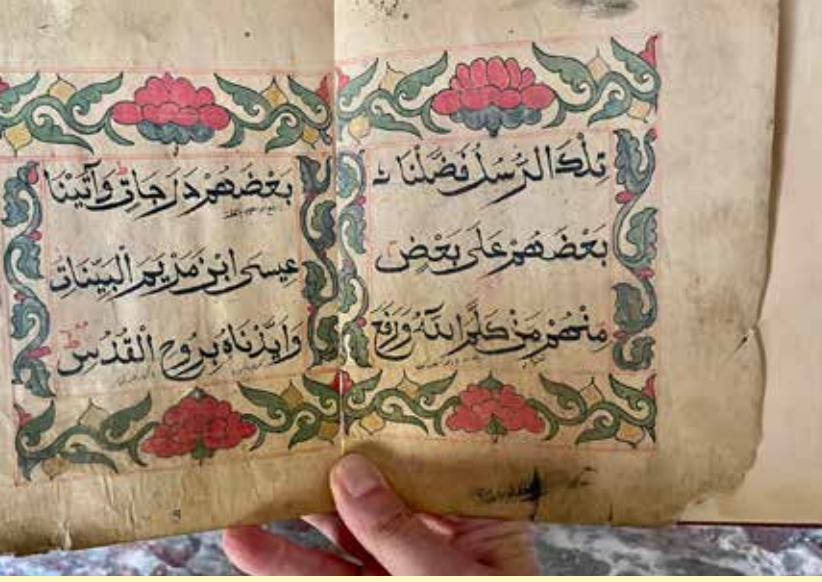 تِلْكَ الرُّسُلُ فَضَّلْنَا
بَعْضَهُمْ عَلَى بَعْضٍ
مِنْهُمْ مَنْ كَلَّمَ اللّٰهُ وَرَفَعَ
بَعْضَهُمْ دَرَجَاتٍ وَآتَيْنَا
عِيسَى ابْنَ مَرْيَمَ الْبَيِّنَاتِ
وَاَيَّدْنَاهُ بِرُوحِ الْقُدُسِ